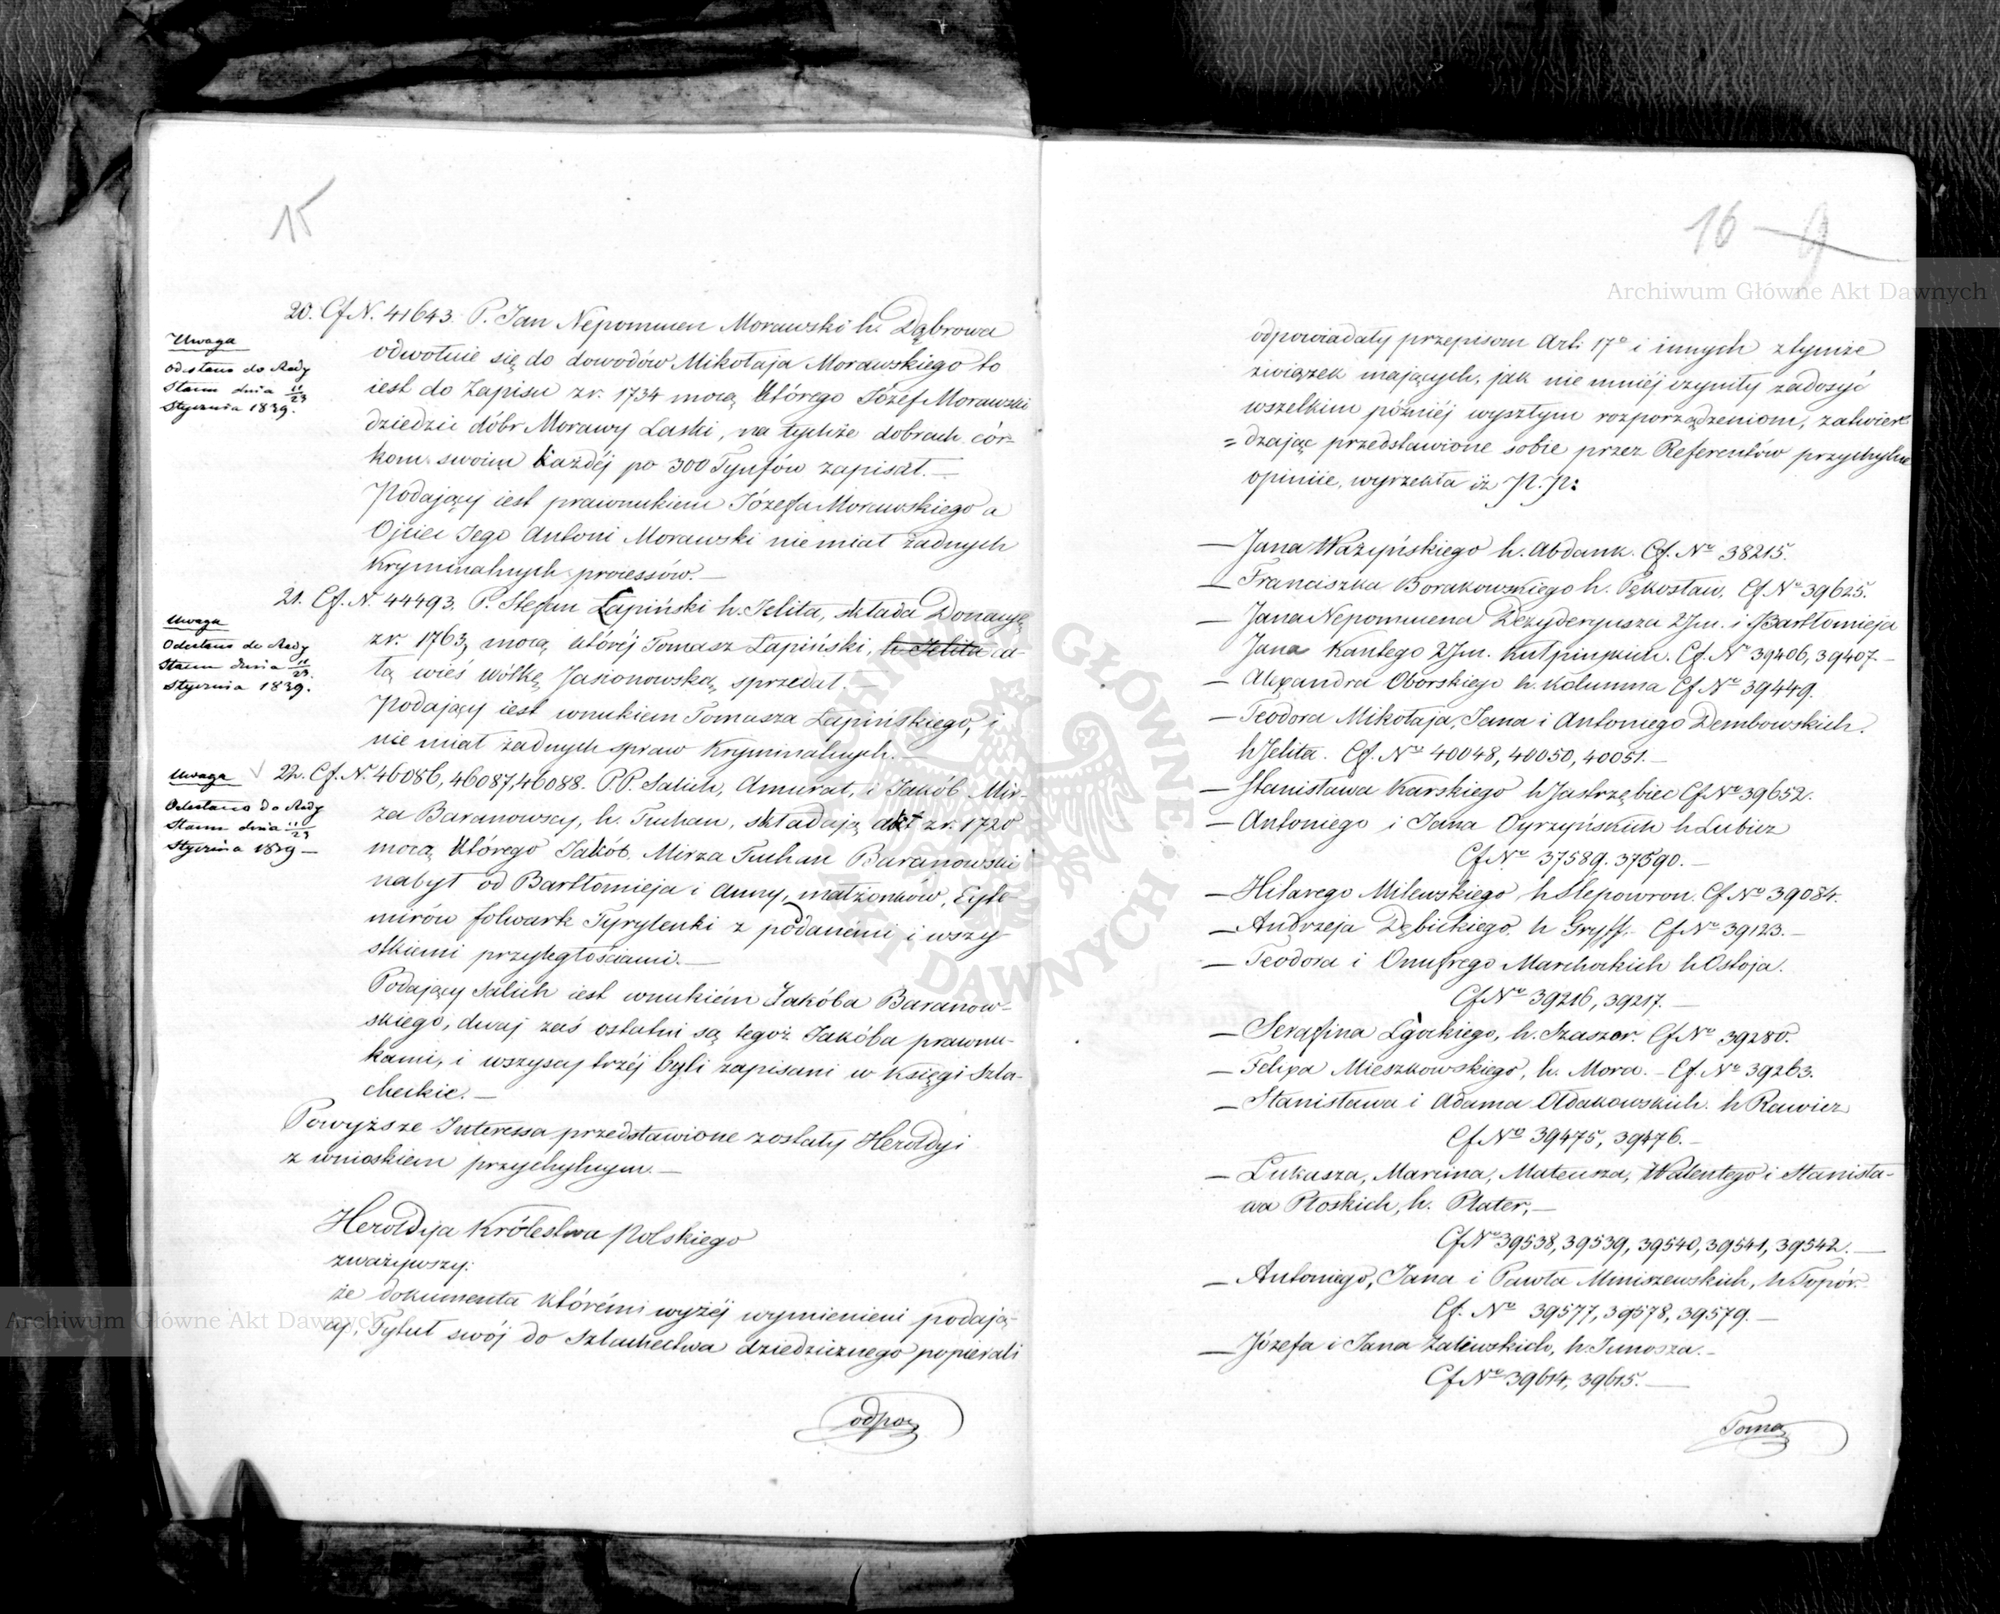 15
20. Cf N. 41643. P. Jan Nepomucen Morawski h. Dąbrowa
Uwaga
Odesłano do Rady
Stanu dnia 11/23
Stycznia 1839.
odwołuie się do dowodów Mikołaja Morawskiego to
iest do Zapisu zr. 1734 mocą którego Józef Morawski
dziedzic dóbr Morawy Laski, na tychże dobrach cór-
kom swoim każdéj po 300 Tynfów zapisał. —
Podający iest prawnukiem Józefa Morawskiego a
Ojciec Jego Antoni Morawski nie miał żadnych
Kryminalnych processów. —
21. Cf. N. 44493. P. Stefan Łapiński h. Jelita, składa Donacyą
Uwaga
Odesłano do Rady
Stanu dnia 11/23.
Stycznia 1839.
zr. 1763, mocą któréj Tomasz Łapiński, h Jelita ca-
łą wieś Wólkę Jasionowską, sprzedał. —
Podający iest wnukiem Tomasza Łapińskiego, i
nie miał żadnych spraw Kryminalnych. —
22. Cf. N. 46086, 46087, 46088. P.P. Salich, Amurat, i Jakób Mir-
Uwaga
Odesłano do Rady
Stanu dnia 11/23
Stycznia 1839 —
za Baranowscy, h. Tuhan, składają akt zr. 1720
mocą którego Jakób Mirza Tuhan Baranowski
nabył od Bartłomieja i Anny, małżonków,
mirów folwark Tyrylenki z poddanémi i wszy-
stkiemi przyległościami. —
Podający Salich iest wnukiém Jakóba Baranow-
skiego, dwaj zaś ostatni są tegoż Jakóba prawnu-
kami, i wszyscy trzéj byli zapisani w Księgi Szla-
checkie. —
Powyższe Interessa przedstawione zostały Heroldyi
z wnioskiem przychylnym. —
Heroldyja Królestwa Polskiego
zważywszy:
że dokumenta którémi wyżéj wymienieni podają-
cy, Tytuł swój do Szlachectwa dziedzicznego popierali
odpo
16 — 9
odpowiadały przepisom Art: 17° i innych z tymże
związek mających, jak nie mniéj czyniły zadosyć
wszelkim późniéj wyszłym rozporządzeniom, zatwier=
= dzając przedstawione sobie przez Referentów przychylne
opiniie, wyrzekła iż P. P:
— Jana Ważyńskiego h. Abdank. Cf. No 38215.
— Franciszka Borakowskiego h. Pękosław. Cf. No 39625.
— Jana Nepomucena Dezyderyusza 2Jm. i Bartłomieja
Jana Kantego 2Jm. Cf. No 39406, 39407. —
— Alexandra Oborskiego h. Kolumna Cf No 39449.
— Teodora Mikołaja, Jana i Antoniego Dembowskich.
h Jelita. Cf. No 40048, 40050, 40051. —
— Stanisława Karskiego h Jastrzębiec Cf No 39652.
— Antoniego i Jana Oyrzyńskich h Lubicz
Cf No 37589. 37590. —
— Hilarego Milewskiego, h Slepowron. Cf No 39084.
— Andrzeja Dębickiego, h Gryff. — Cf No 39123. —
— Teodora i Onufrego Marchockich h Ostoja.
Cf No 39216, 39217. —
— Serafina Łgockiego, h. Szaszor. Cf No 39280.
— Felixa Mieszkowskiego, h. Mora. — Cf. No 39263.
— Stanisława i Adama Ołdakowskich. h Rawicz
Cf No 39475, 39476. —
— Łukasza, Marcina, Mateusza, Walentego i Stanisła-
wa Płoskich, h. Plater, —
Cf No 39538, 39539, 39540, 39541, 39542. —
— Antoniego, Jana i Pawła Miniszewskich, h Topór. —
Cf. No 39577, 39578, 39579. —
— Józefa i Jana Zalewskich, h. Junosza. —
Cf No 39614, 39615. —
Toma
Archiwum Główne Akt Dawnych
Archiwum Główne Akt Dawnych
ARCHIWUM GŁÓWNE AKT DAWNYCH